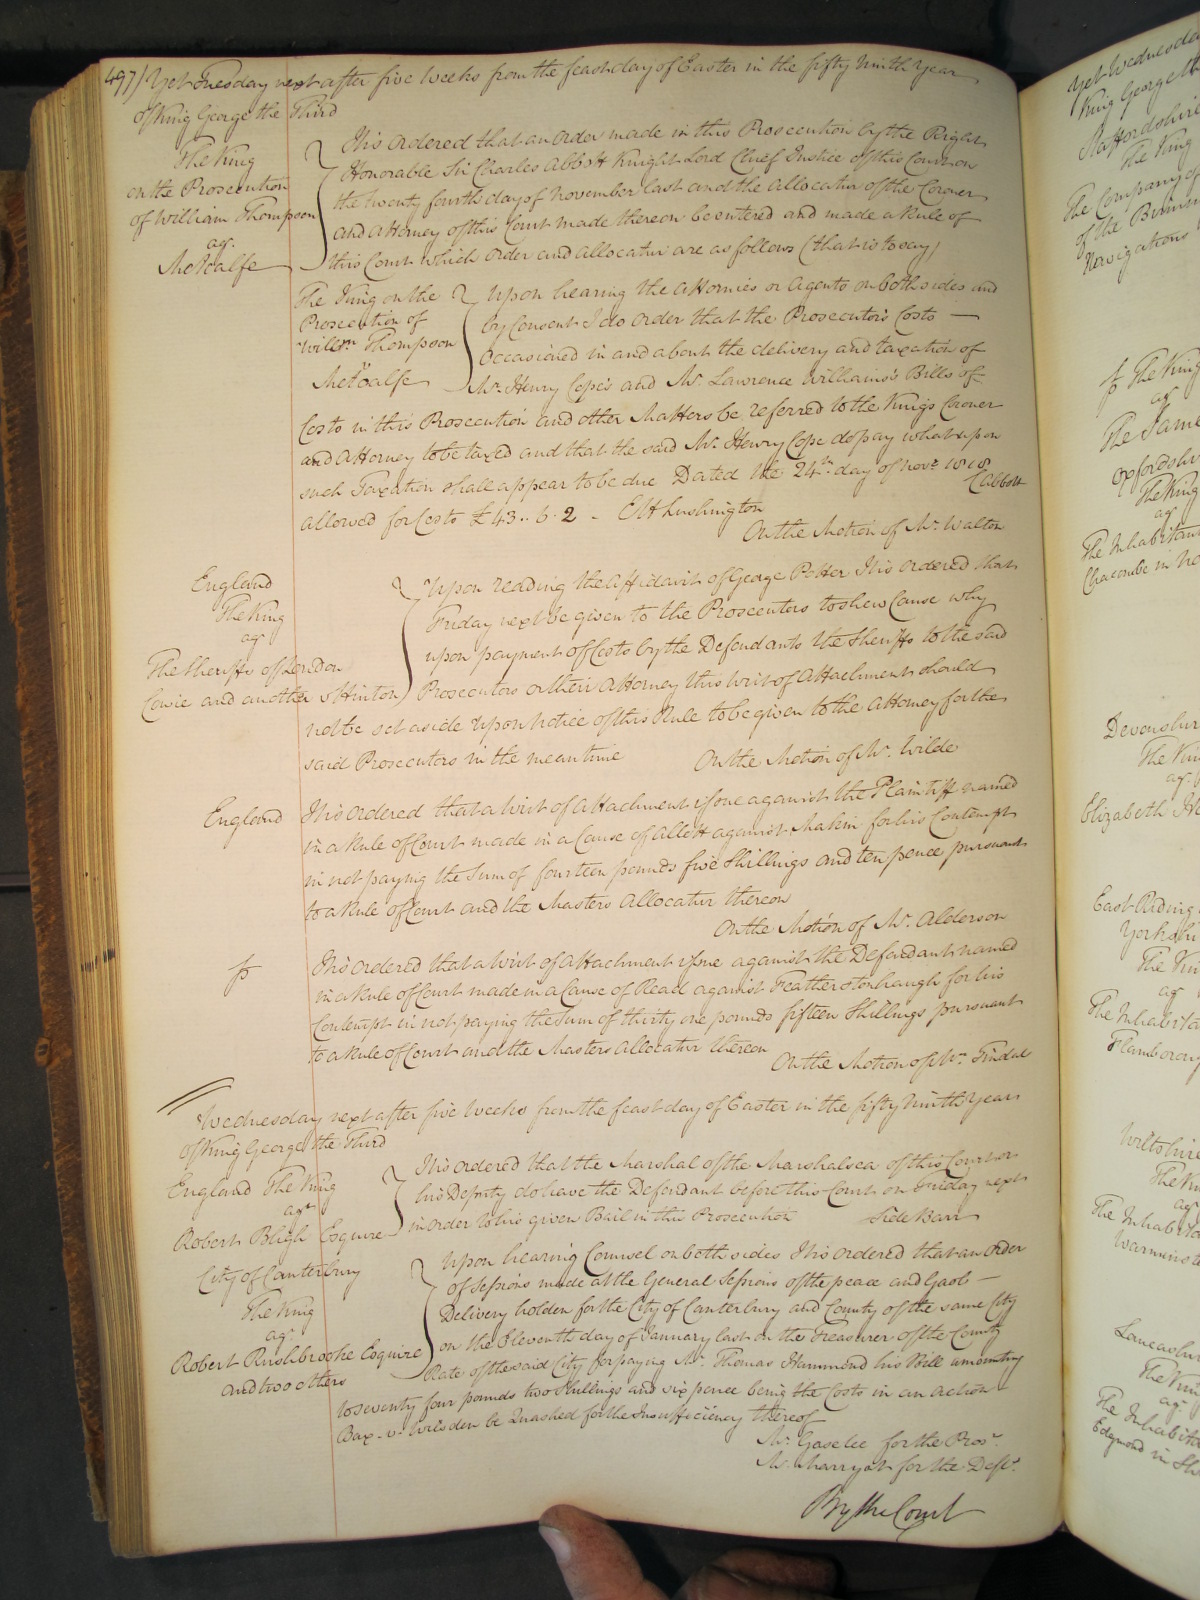 497/ Yet Tuesday next after five Weeks from the feast day of Easter in the fifty Ninth Year
of King George the Third
The King
on the Prosecution
of William Thompson
agt
Metcalfe
It is ordered that an order made in this Prosecution by the Right
Honorable Sir Charles Abbott Knight Lord Chief Justice of this Court on
the twenty fourth day of November last and the allocatur of the Coroner
and Attorney of this Court made thereon be entered and made a Rule of
this Court which order and allocatur are as follows (that is to say)
The King on the
Prosecution of
Willm Thompson
v
Metcalfe
Upon hearing the Attornies or Agents on both sides and
by Consent I do order that the Prosecutor's Costs —
occasioned in and about the delivery and taxation of
Mr. Henry Cope's and Mr. Lawrence Williams's Bills of
Costs in this Prosecution and other Matters be referred to the King's Coroner
and Attorney to be taxed and that the said Mr. Henry Cope do pay what upon
such Taxation shall appear to be due Dated the 24th day of Novr. 1818
C Abbott
allowed for Costs £43.. 6. 2 - E H Lushington
On the Motion of Mr. Walton
England
The King
agt
The Sheriffs of London
Cowie and another v Hinton
Upon reading the Affidavit of George Potter It is ordered that
Friday next be given to the Prosecutors to shew Cause why
upon payment of Costs by the Defendants the Sheriffs to the said
Prosecutors or their Attorney this Writ of Attachment should
not be set aside upon Notice of this Rule to be given to the Attorney for the
said Prosecutors in the mean time On the Motion of Mr. Wilde
England
It is ordered that a Writ of Attachment issue against the Plaintiff named
in a Rule of Court made in a Cause of Allott against Makin for his Contempt
in not paying the Sum of fourteen pounds five Shillings and ten pence pursuant
to a Rule of Court and the Masters allocatur thereon
On the Motion of Mr. Alderson
It is ordered that a Writ of Attachment issue against the Defendant named
in a Rule of Court made in a Cause of Read against Featherstonhaugh for his
Contempt in not paying the Sum of thirty one pounds fifteen Shillings pursuant
to a Rule of Court and the Masters allocatur thereon
On the Motion of Mr. Tindal
Wednesday next after five Weeks from the feast day of Easter in the fifty Ninth Year
of King George the Third
England The King
agt
Robert Bligh Esquire
It is ordered that the Marshal of the Marshalsea of this Court or
his Deputy do have the Defendant before this Court on Friday next
in order to his given Bail in this Prosecution Side Barr
City of Canterbury
The King
agt
Robert Rushbrooke Esquire
and two others
Upon hearing Counsel on both sides It is ordered that an order
of Sessions made at the General Sessions of the peace and Gaol —
Delivery holden for the City of Canterbury and County of the same City
on the Eleventh day of January last on the Treasurer of the County
Rate of the said City for paying Mr. Thomas Hammond his Bill amounting
to seventy four pounds two Shillings and six pence being the Costs in an action
Bax v. Wilsden be Quashed for the Insufficiency thereof
Mr. Gaselee for the Prosr.
Mr. Marryat for the Deft.
By the Court
Yet Wednesday
King George the
Staffordshire
The King
The Company of
of the Birmin
Navigations
The King
agt
The Same
Oxfordshire
The King
agt
The Inhabitants
Chacombe in No
Devonshire
The King
agt
Elizabeth
East Riding
Yorkshi
The Kin
agt
The Inhabita
Flamboroug
Wiltshire
The Kin
agt
The Inhabita
Warminste
Lancashire
The Kin
agt
The Inhabita
Edgmond in Sh